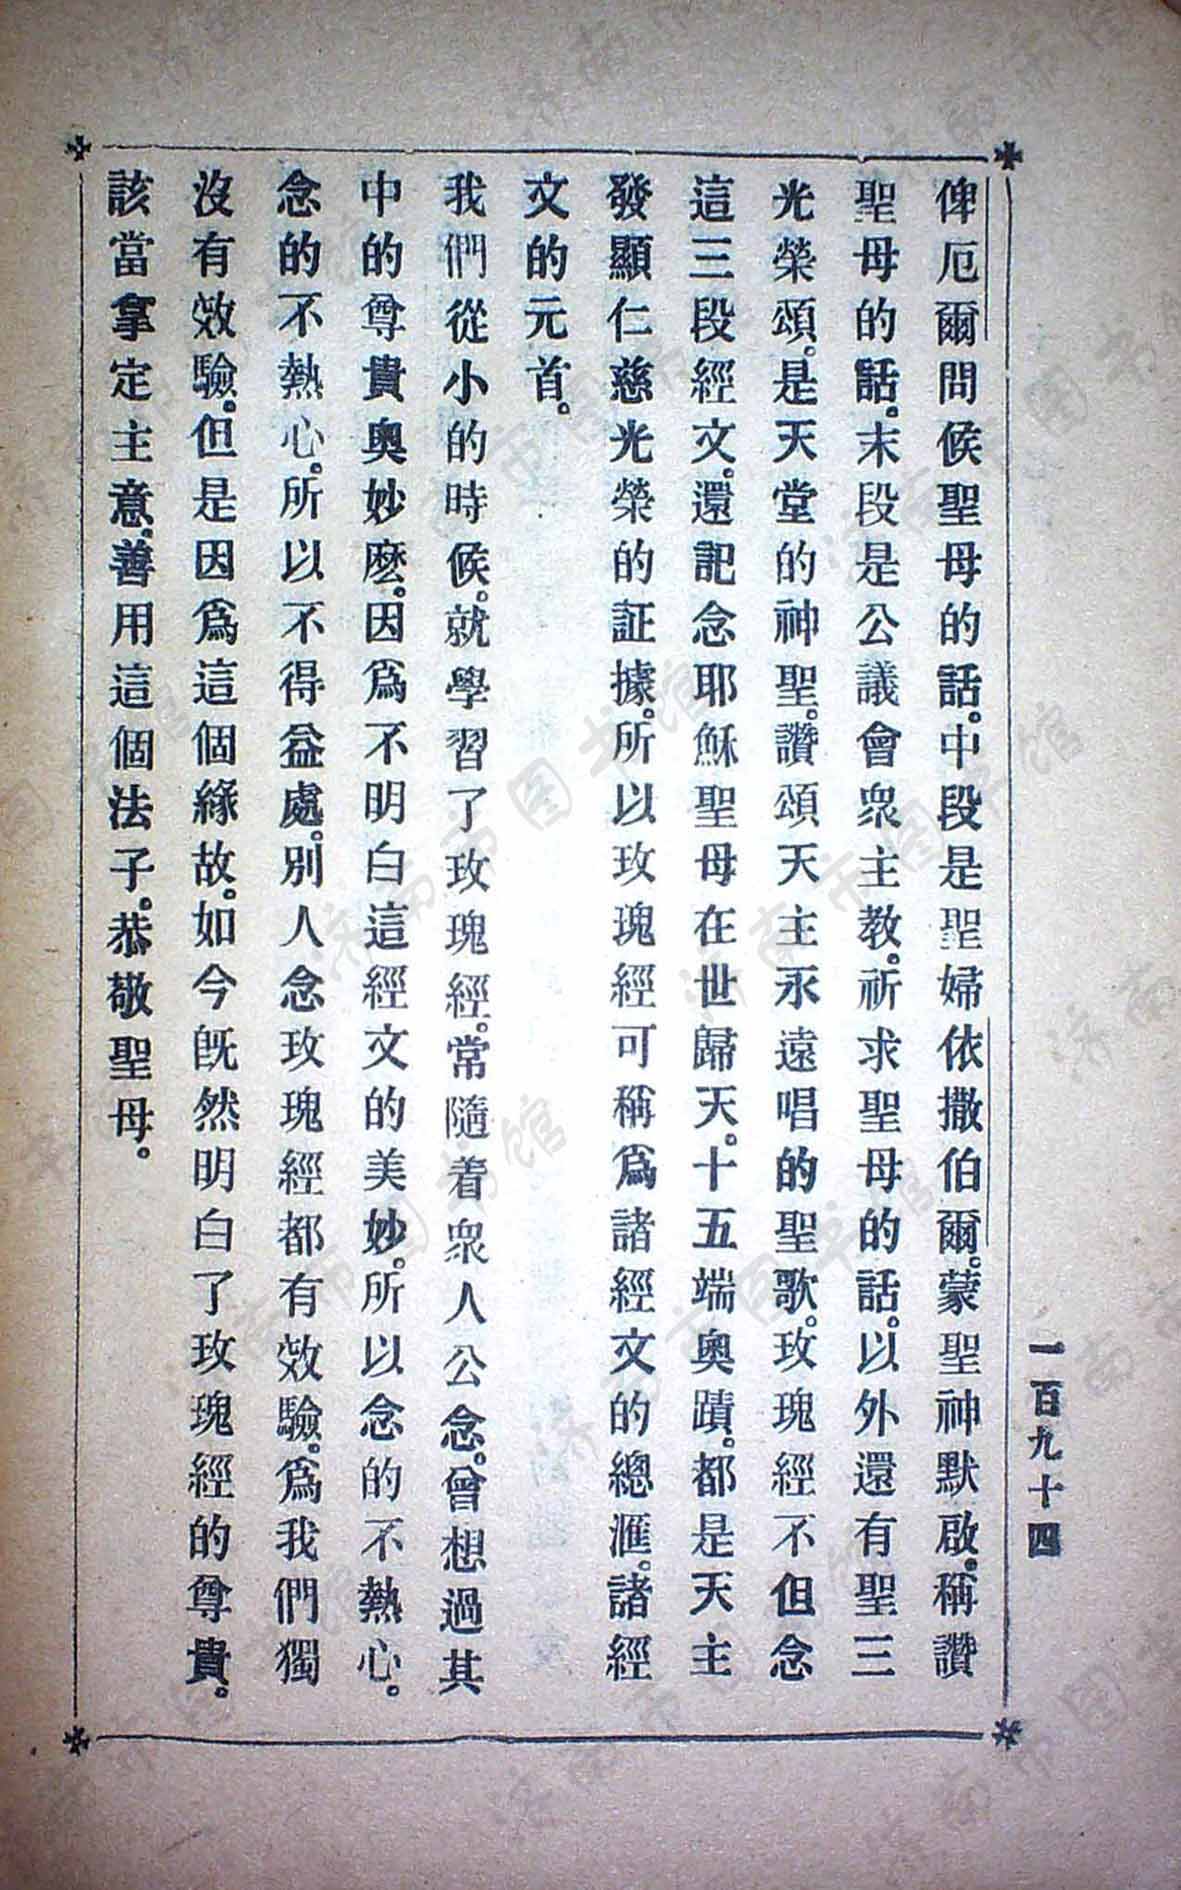 俾厄爾問候聖母的話。中段是聖婦依撒伯爾。蒙聖神默啟。稱讚
聖母的話。末段是公議會衆主教。祈求聖母的話。以外還有聖三
光榮頌。是天堂的神聖。讚頌天主永遠唱的聖歌。玫瑰經不但念
這三段經文。還記念耶穌聖母在世歸天。十五端奧蹟。都是天主
發顯仁慈光榮的証據。所以玫瑰經可稱爲諸經文的總滙。諸經
文的元首。
我們從小的時候。就學習了玫瑰經。常隨着衆人公念。曾想過其
中的尊貴奧妙麽。因爲不明白這經文的美妙。所以念的不熱心。
念的不熱心。所以不得益處。別人念玫瑰經都有效驗。爲我們獨
沒有效驗。但是因爲這個緣故。如今旣然明白了玫瑰經的尊貴。
該當拿定主意。善用這個法子。恭敬聖母。
一百九十四
济南市图书馆